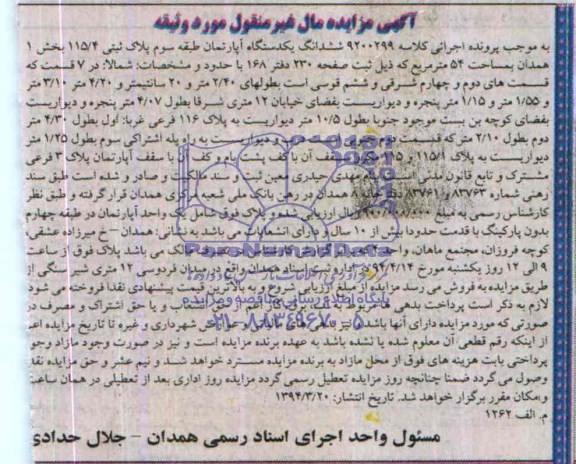 آگهی مزایده مال غیرمنقول مورد وثیقه
به موجب پرونده اجرائی کلاسه ۹۲۰۰۲۹۹ ششدانگ یکدستگاه آپارتمان طبقه سوم پلاک ثبتی ۱۱۵/۴ بخش ۱
همدان بمساحت ۵۴ مترمربع که ذیل ثبت صفحه ۲۳۰ دفتر ۱۶۸ با حدود و مشخصات: شمالا: در ۷ قسمت که
قسمت های دوم و چهارم شرقی و ششم قوسی است بطولهای ۲/۴۰ متر و ۲۰ سانتیمتر و ۴/۲۰ متر ۳/۱۰ متر
و ۱/۵۵ متر و ۱/۱۵ متر پنجره و دیواریست بفضای خیابان ۱۲ متری شرقا بطول ۴/۰۷ متر پنجره و دیواریست
بفضای کوچه بن بست موجود جنوبا بطول ۱۰/۵ متر دیواریست به پلاک ۱۱۶ فرعی غربا: اول بطول ۴/۳۰ متر
دوم بطول ۲/۱۰ متر که قسمت دوم جنوبی است و دیواریست به راه پله اشتراکی سوم بطول ۱/۲۵ متر
دیواریست به پلاک ۱۱۵/۱ و ۱۱۵ سقف آن با کف پشت بام و کف آن با سقف آپارتمان پلاک ۳ فرعی
مشترک و تابع قانون مدنی است مهدی حیدری معین ثبت و سند مالکیت صادر و شده است طبق سند
رهنی شماره ۸۳۷۶۳ و ۸۳۷۶۱ دفترخانه ۸ همدان در رهن بانک ملی شعبه مرکزی همدان قرار گرفته و طبق نظر
کارشناس رسمی به مبلغ ریال ارزیابی شده و پلاک فوق شامل یک واحد آپارتمان در طبقه چهارم
بدون پارکینگ با قدمت حدودا بیش از ۱۰ سال و دارای انشعابات می باشد به نشانی: همدان – خ میرزاده عشقی،
کوچه فروزان، مجتمع ماهان، واحد مالک می باشد پلاک فوق از ساعت
۹ الی ۱۲ روز یکشنبه مورخ ۹۴/۴/۱۴ در اداره ثبت اسناد همدان واقع در میدان فردوسی ۱۲ متری شیر سنگی از
طریق مزایده به فروش می رسد مزایده از مبلغ ارزیابی شروع و به بالاترین قیمت پیشنهادی نقدا فروخته می شود
لازم به ذکر است پرداخت بدهی های مربوط به آب، برق، گاز اعم از حق انشعاب و یا حق اشتراک و مصرف در
صورتی که مورد مزایده دارای آنها باشد و نیز بدهی های مالیاتی و عوارض شهرداری و غیره تا تاریخ مزایده اعم
از اینکه رقم قطعی آن معلوم شده یا نشده باشد به عهده برنده مزایده است و نیز در صورت وجود مازاد وجوه
پرداختی بابت هزینه های فوق از محل مازاد به برنده مزایده مسترد خواهد شد و نیم عشر و حق مزایده نقدا
وصول می گردد ضمنا چنانچه روز مزایده تعطیل رسمی گردد مزایده روز اداری بعد از تعطیلی در همان ساعت
ومکان مقرر برگزار خواهد شد. تاریخ انتشار: ۱۳۹۴/۳/۲۰
م. الف ۱۲۶۲
مسئول واحد اجرای اسناد رسمی همدان – جلال حدادی
ParsNamadData
پایگاه اطلاع رسانی مناقصه و مزایده
۰۲۱-۸۸۳۴۹۶۷۰-۵